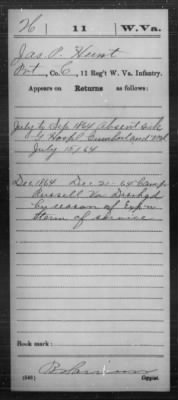 H | 11 | W.Va.
Jas. P. Hunt
Pvt, Co. C, 11 Reg't W. Va. Infantry.
Appears on Returns as follows:
July to Sep 1864 Absent sick
G Hospl. Cumberland Md
July 15/64
Dec 1864 Dec. 21-64 Camp
Russell Va Dischgd
by reason of Exp'n
term of service
Book mark:
(546) Copyist.